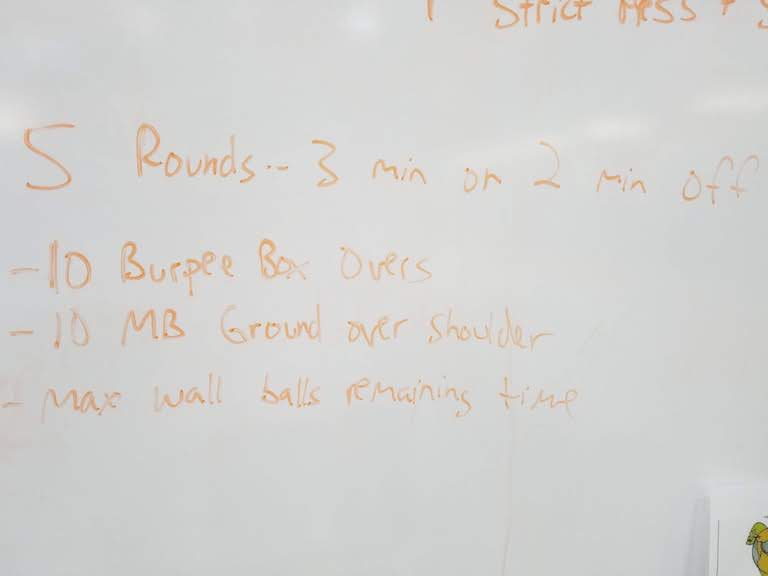 Strict Press +
5 Rounds -- 3 min on 2 min off
- 10 Burpee Box Overs
- 10 MB Ground over shoulder
- Max wall balls remaining time